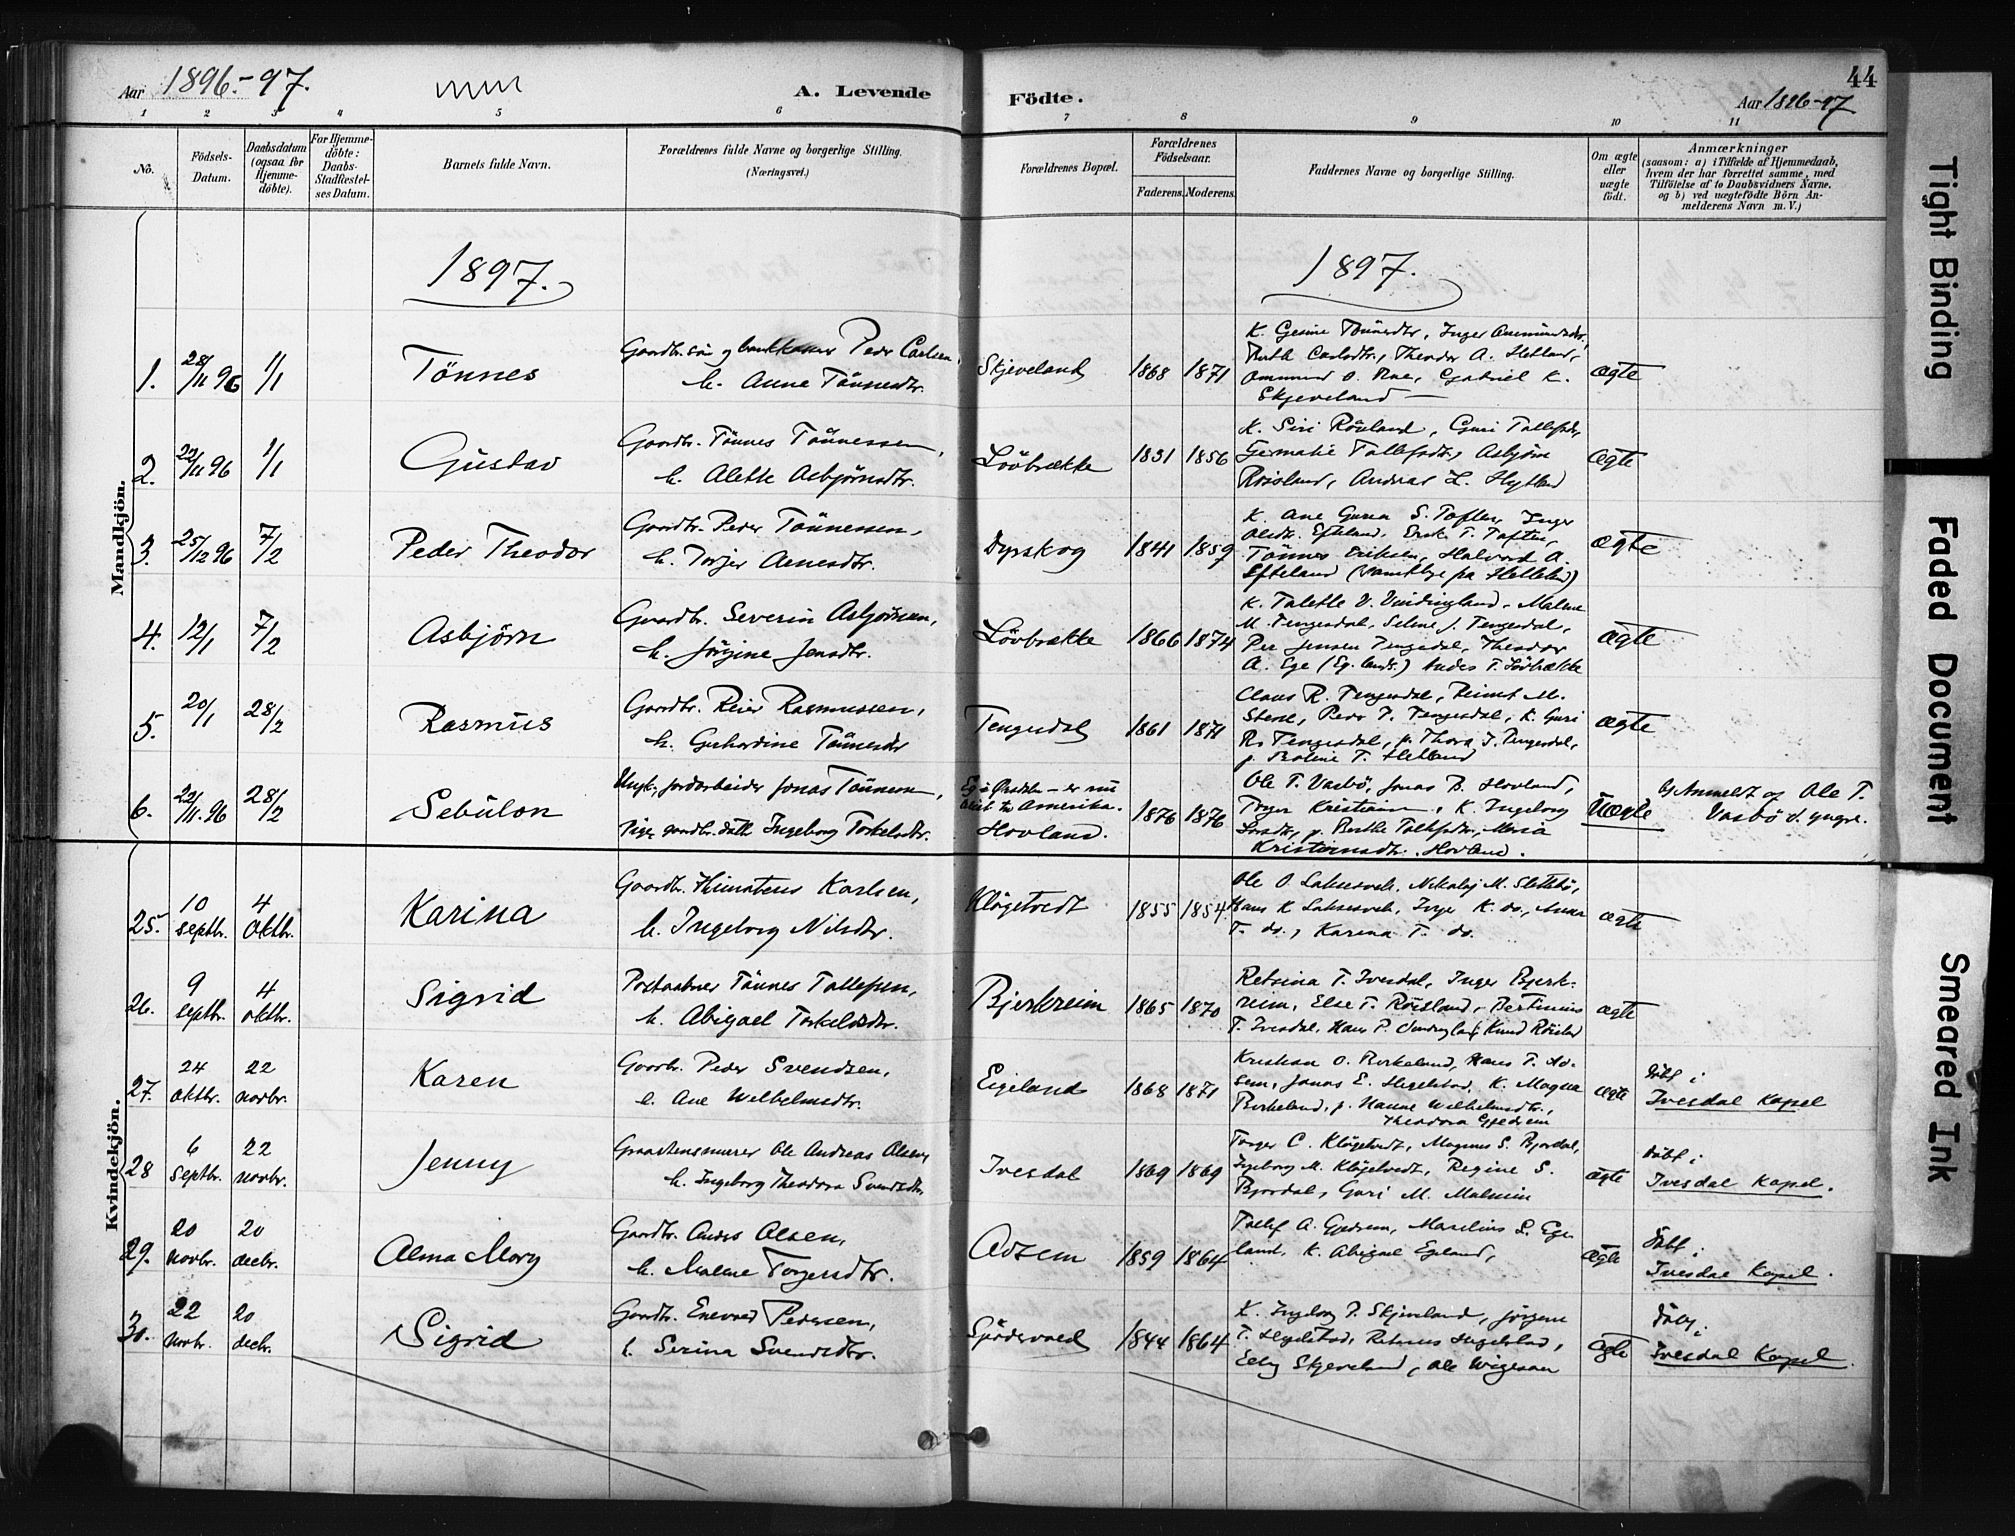 Aar 1896-97.
A. Levende
Födte.
44
Aar 1896-97
1 2 3 4 5 6 7 8 9 10 11
No.
Födsels-Datum.
Daabsdatum (ogsaa for Hjemme-döbte).
For Hjemme-döbte: Daabs-Stadfæstel-ses Datum.
Barnets fulde Navn.
Forældrenes fulde Navne og borgerlige Stilling. (Næringsvei.)
Forældrenes Bopæl.
Forældrenes Födselsaar.
Faderens. Moderens.
Faddernes Navne og borgerlige Stilling.
Om ægte eller uægte födt.
Anmærkninger
(saasom: a) i Tilfælde af Hjemmedaab,
hvem der har forrettet samme, med
Tilföielse af to Daabsvidners Navne.
og b) ved uægtefödte Börn An-
melderens Navn m. V.)
1897.
1897.
Mandkjön.
1. 28/11 96 1/1 Tönnes
Gaardbr. sön Peder Carlsen,
h. Anne Tönnesdtr.
Skjeveland 1868 1871
K. Gesine Tönnesdtr,
Berthe Carlsdtr, Theodor A. Hetland,
Ommund O. Gabriel K.
Skjeveland
ægte
2. 22/11 96 1/1 Gustav
Gaardbr. Tönnes Tönnessen,
h. Alette Asbjörnsdtr.
Lövbrække 1851 1856
K. Siri Röisland, Guri Tollefsdtr,
Tollefsdtr, Asbjörn
Röisland, Andreas L. Hytland
ægte
3. 25/12 96 7/2 Peder Theodor
Gaardbr. Peder Tönnessen,
h. Torjer Aenesdtr.
Dyrskog 1841 1859
K. Ane Gurea S. Toften, Inger
Olsdtr. Efteland, Erik T. Toften,
Tönnes Eriksen, Halvard A.
Efteland (samtlige fra Helleland)
ægte
4. 12/1 7/2 Asbjörn
Gaardbr. Severin Asbjörnsen,
h. Jörgine Jensdtr.
Lövbrække 1866 1874
K. Talette V. Vindingland, Malene
M. Tengesdal, Seline J. Tengesdal,
Per Jensen Tengesdal, Theodor
A. Ege (Eg. lands.) Andes T. Lövbrække
ægte
5. 20/1 28/2 Rasmus
Gaardbr. Reier Rasmussen,
h. Gerhardine Tönnesdtr
Tengesdal 1861 1871
Claus R. Tengesdal, Reinert M.
Stene, Peder J. Tengesdal, K. Guri
R. Tengesdal, p. Thora J. Tengesdal,
p. Roline T. Hetland
ægte
6. 22/11 96 28/2 Sebulon
Ungk., jordarbeider Jonas Tönnesen,
Pige, gaardbr. datt. Ingeborg Torkelsdtr.
er nu
reist til Amerika.
Hovland.
1876 1876
Ole T. Vasbö, Jonas B. Hovland,
Torger Kristiansen, K. Ingeborg
p. Berthe Tollefsdtr, Maria
Kristiansdtr. Hovland.
Uægte
b) Anmeldt og Ole T.
Vasbö d. yngre.
Kvindekjön.
25. 10 septbr. 4 oktbr. Karina
Gaardbr. Karlsen,
h. Ingeborg Nilsdtr.
Klögetvedt 1855 1854
Ole O. Laksesvelt, Nikolaj M. Slettebö,
Hans K Laksesvelt, Inger K. do., Anna
T. do., Karina T. do.
ægte
26. 9 septbr. 4 oktbr. Sigrid
Postaabner Tönnes Tollefsen,
h. Abigael Torkelsdtr.
Bjerkreim 1865 1870
Retsina T. Ivesdal, Inger Bjerk-
reim, Else T. Röisland, Bertinius
T. Ivesdal, Hans P. Knud Röisland
ægte
27. 24 oktbr. 22 novbr. Karen
Gaarbr. Peder Svendsen,
h. Ane Welhelmsdtr.
Eigeland 1868 1871
Kristian O. Birkeland, Hans T. Ad-
sem, Jonas E. Hegelstad, K. Magna
Birkeland, p. Hanne Wilhelmsdtr.,
Theodora Gjedrem
ægte
döbt i
Ivesdal Kapel
28 6 septbr. 22 novbr. Jenny
Graastensmurer Ole Andreas Olsen,
h. Ingeborg Theodora Svendsdtr
Ivesdal 1869 1869
Torger C. Klögetvedt, Magnus S. Bjordal,
Ingeborg M. Klögetvedt, Regine S.
Bjordal, Guri M. Malmin
ægte
döbt i
Ivesdal Kapel.
29. 20 novbr. 20 decbr. Alma Mary
Gaardbr. Anders Olsen,
h. Malene Torgersdtr.
Adsem 1859 1864
Tollef A. Gjedrem, Maselius L. Ege-
land, K. Abigael Egeland,
ægte
Döbt i
Ivesdal Kapel.
30. 22 novbr. 20 decbr. Sigrid
Gaardbr. Enevald Pedersen,
h. Serina Svendsdtr.
Spödervold 1844 1864
K. Ingeborg P. Skjeveland, Jörgine
T. Hegelstad, Hegelstad,
Skjeveland, Ole
ægte
Döbt i
Ivesdal Kapel.
Tight Binding
Faded Document
Smeared Ink